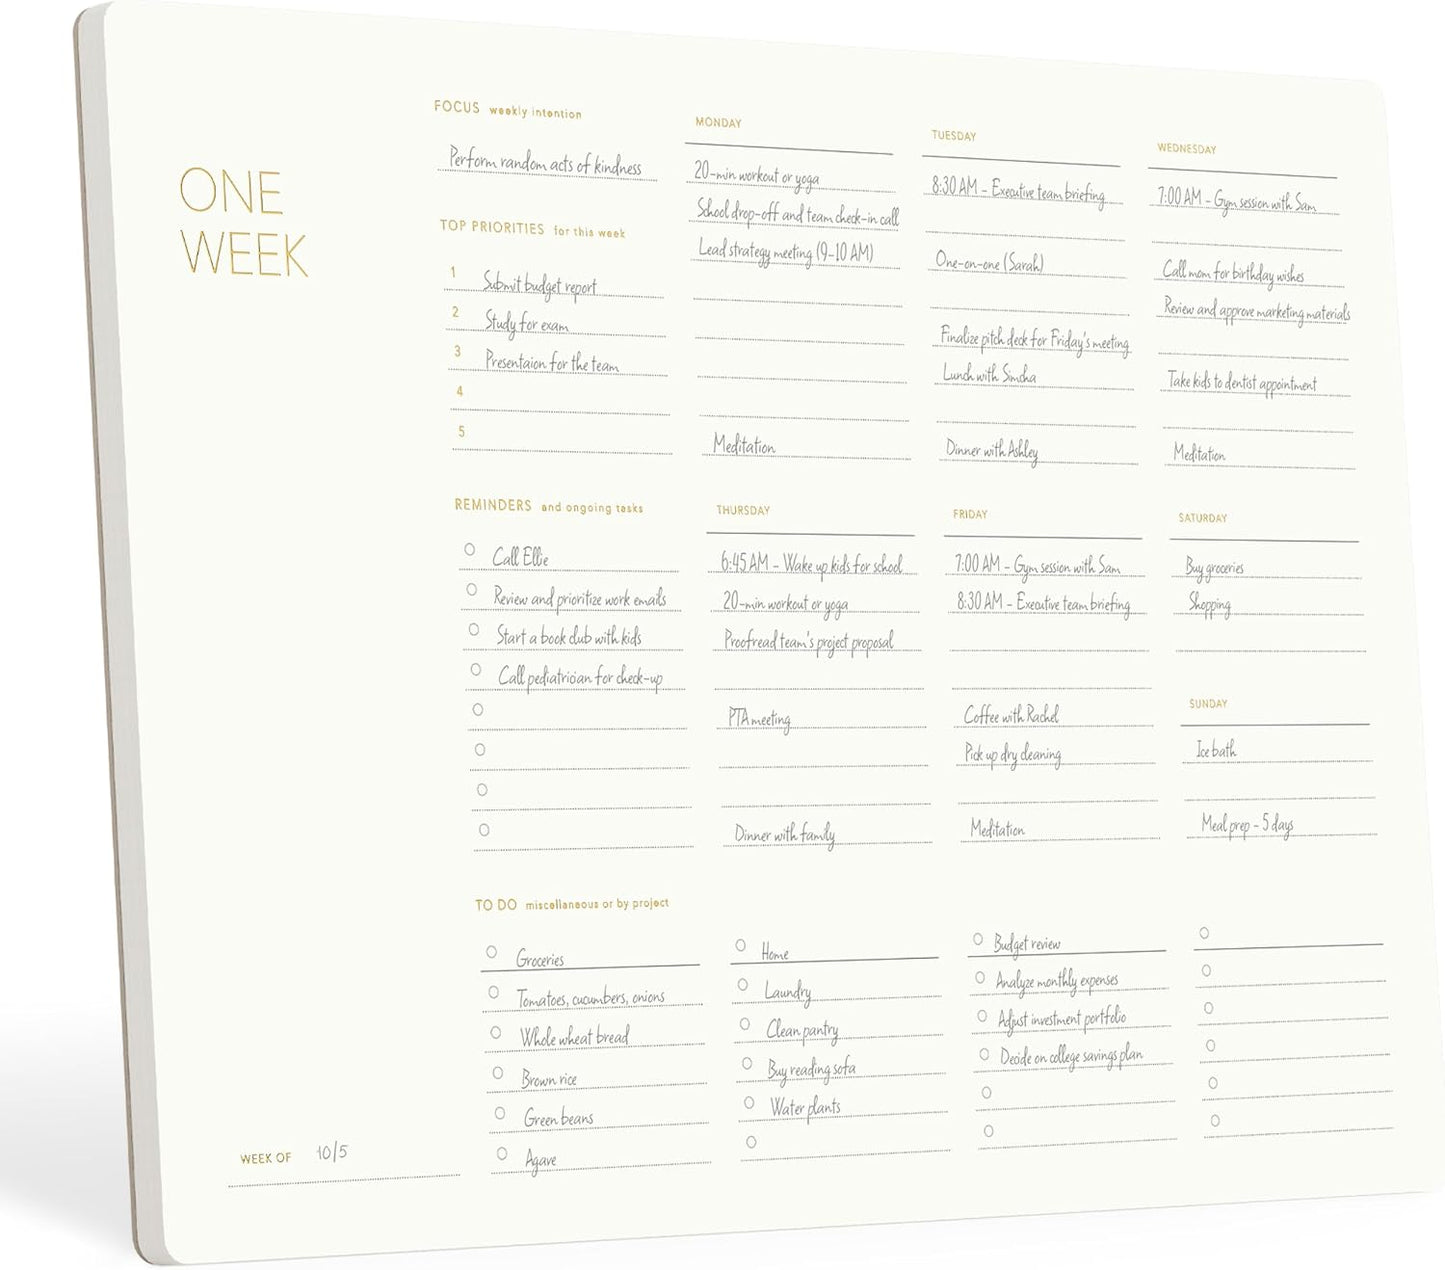 ONE
WEEK
FOCUS weekly intention
Perform random acts of kindness
TOP PRIORITIES for this week
1 Submit budget report
2 Study for exam
3 Presentaion for the team
4
5
MONDAY
20-min workout or yoga
School drop-off and team check-in call
Lead strategy meeting (9-10 AM)
Meditation
TUESDAY
8:30 AM - Executive team briefing
One-on-one (Sarah)
Finalize pitch deck for Friday's meeting
Lunch with Simcha
Dinner with Ashley
WEDNESDAY
7:00 AM - Gym session with Sam
Call mom for birthday wishes
Review and approve marketing materials
Take kids to dentist appointment
Meditation
REMINDERS and ongoing tasks
Call Ellie
Review and prioritize work emails
Start a book club with kids
Call pediatrician for check-up
THURSDAY
6:45 AM - Wake up kids for school
20-min workout or yoga
Proofread team's project proposal
PTA meeting
Dinner with family
FRIDAY
7:00 AM - Gym session with Sam
8:30 AM - Executive team briefing
Coffee with Rachel
Pick up dry cleaning
Meditation
SATURDAY
Buy groceries
Shopping
SUNDAY
Ice bath
Meal prep - 5 days
TO DO miscellaneous or by project
Groceries
Tomatoes, cucumbers, onions
Whole wheat bread
Brown rice
Green beans
Agave
Home
Laundry
Clean pantry
Buy reading sofa
Water plants
Budget review
Analyze monthly expenses
Adjust investment portfolio
Decide on college savings plan
WEEK OF 10/5